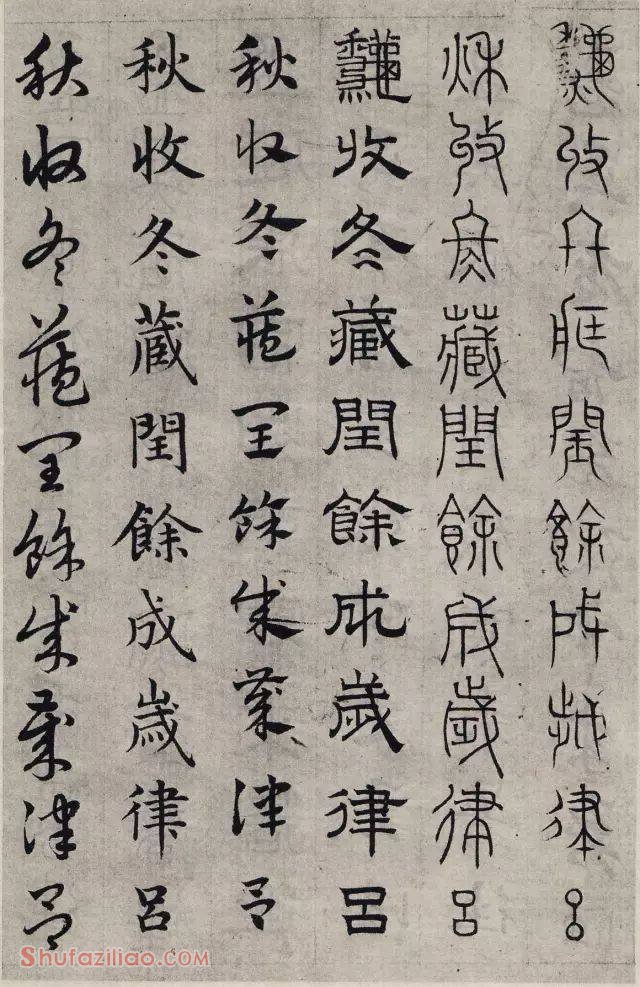 秋收冬藏閏餘成歲律呂
秋收冬藏閏餘成歲律呂
秋收冬藏閏餘成歲律呂
秋收冬藏閏餘成歲律呂
秋收冬藏閏餘成歲律呂
秋收冬藏閏餘成歲律呂
Shufaziliao.COM